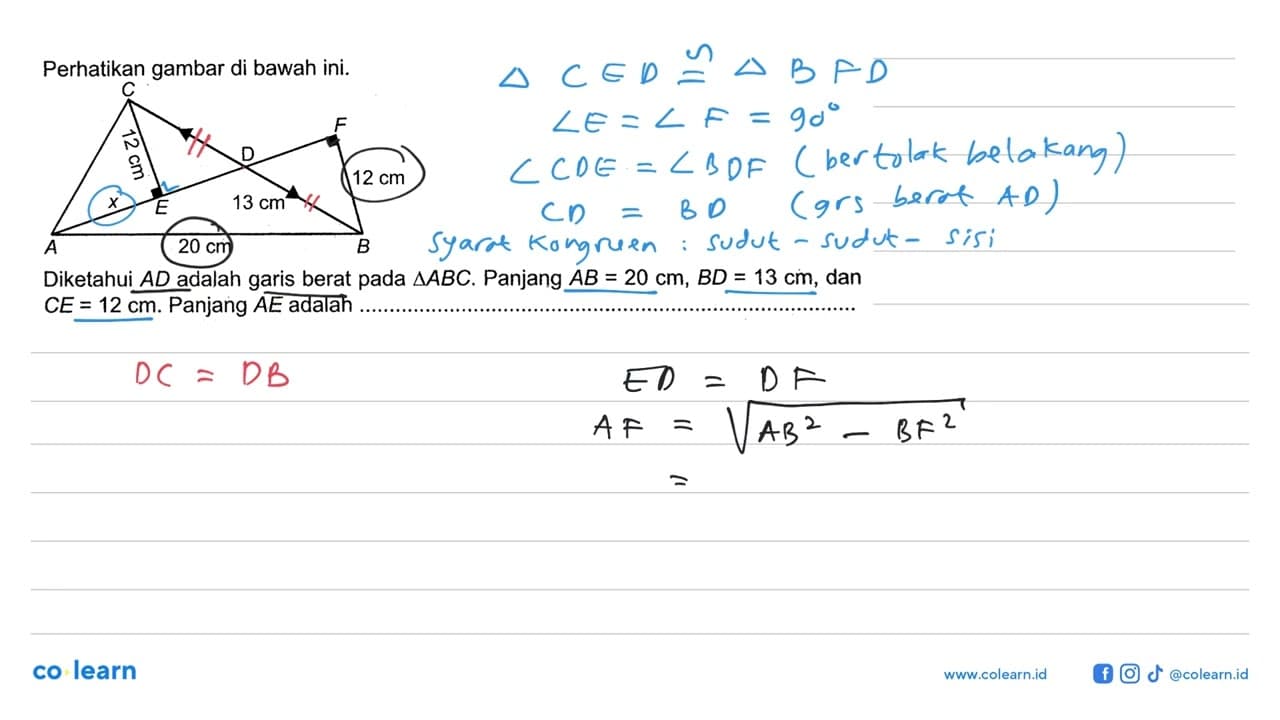 Perhatikan gambar di bawah ini.
C
F
D
12 cm
12 cm
x
E
13 cm
A
20 cm
B
Diketahui AD adalah garis berat pada ΔABC. Panjang AB = 20 cm, BD = 13 cm, dan
CE = 12 cm. Panjang AE adalah ..........................................................................................
Δ CED ≅ Δ BFD
∠E = ∠F = 90°
∠CDE = ∠BDF (bertolak belakang)
CD = BD (grs berat AD)
Syarat Kongruen : sudut - sudut - sisi
DC = DB
ED = DF
AF = √AB² - BF²
=
co learn
www.colearn.id
@colearn.id